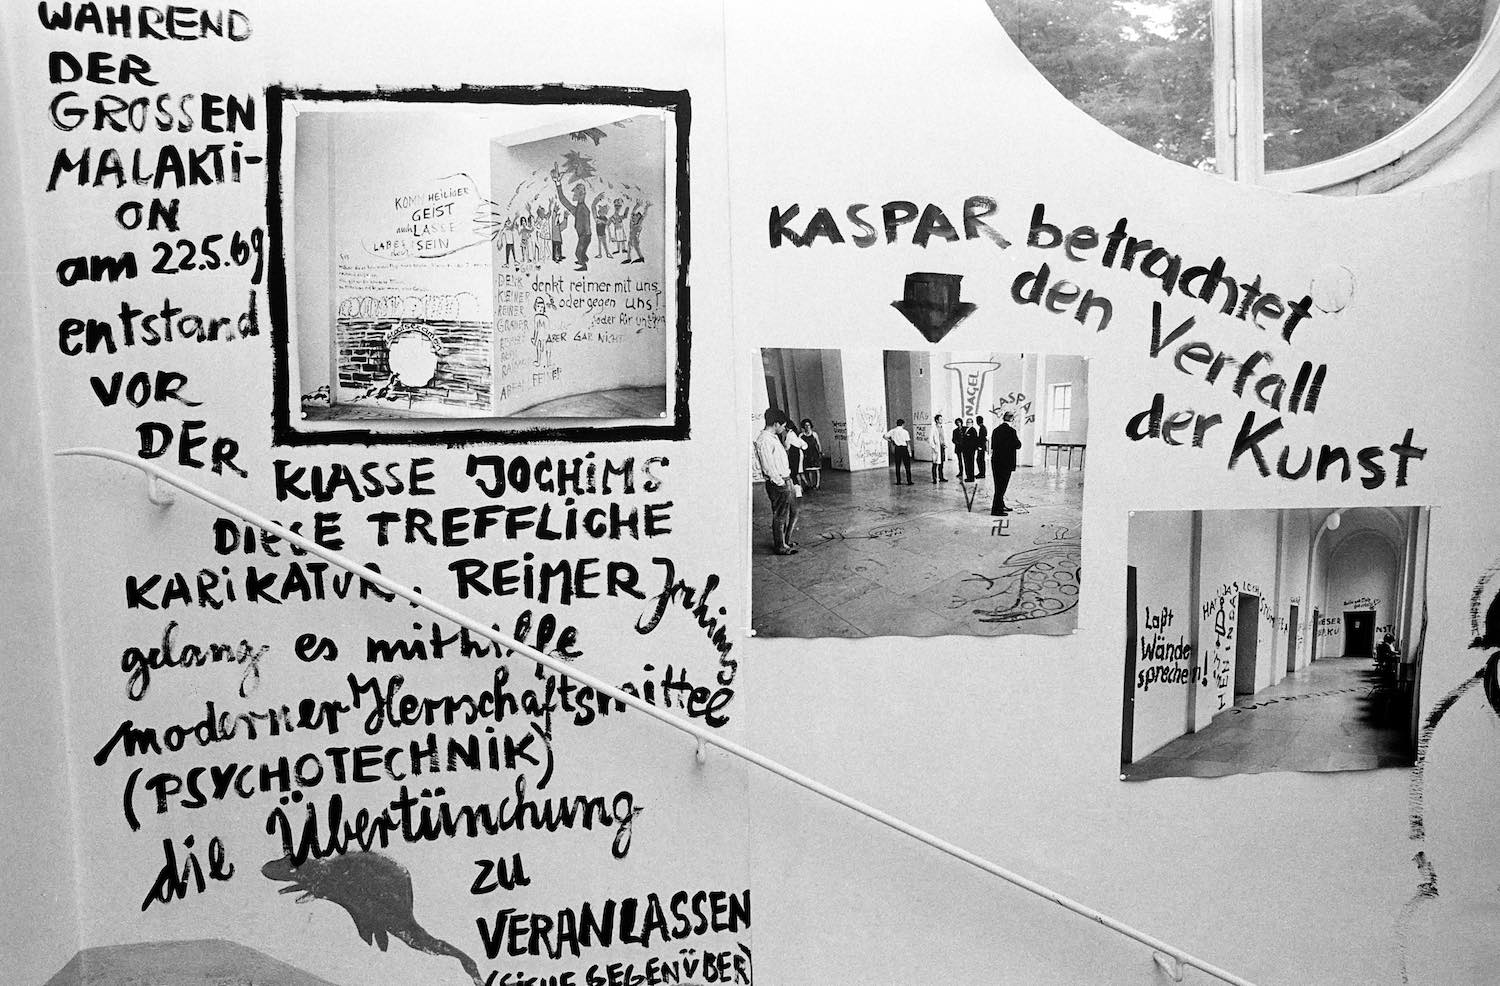 WÄHREND
DER
GROSSEN
MALAKTi-
ON
am 22.5.69
entstand
VOR
DER
KLASSE JOCHiMS
DIESE TREFFLiCHE
KARiKATUR, REiMER Jochims
gelang es mit hilfe
moderner Herrschaftsmittel
(PSYCHOTECHNiK)
die Übertünchung
zu
VERANLASSEN
(SiEHE GEGENÜBER)
KOMM HEiLiGER
GEiST
auch LASSE
SEiN
denkt reimer mit uns
oder gegen uns!
oder für uns?
ABER GAR NICHT
DENK
KEiNER
REiMER
KASPAR betrachtet
den Verfall
der Kunst
NAGEL
KASPAR
Laßt
Wände
sprechen!